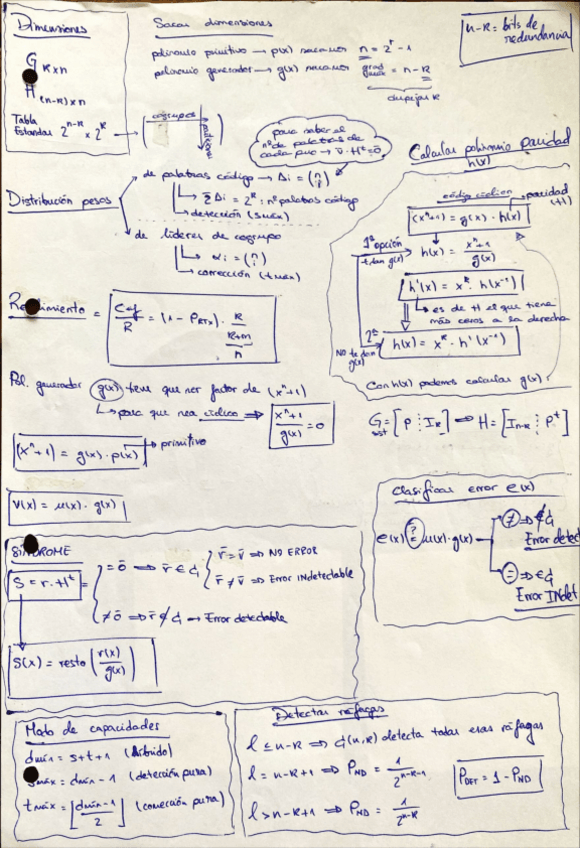 Dimensiones
G k x n
H (n-k) x n
Tabla
Estandar 2^{n-k} x 2^k
cogrupos
Sacar dimensiones
polinomio primitivo → p(x) sacamos n = 2^r - 1
polinomio generador → g(x) sacamos grad max = n - k
despejar k
n-k = bits de
redundancia
para saber el
nº de palabras de
cada peso → v̄ · H^t = 0̄
Distribución pesos
de palabras código → Ai = (n i)
Σ Ai = 2^k : nº palabras código
detección (s max)
de líderes de cogrupo
αi = (n i)
corrección (t max)
Calcular polinomio paridad
h(x)
código cíclico
paridad
(H)
(x^n+1) = g(x) · h(x)
1ª opción
te dan g(x)
h(x) = (x^n+1) / g(x)
h'(x) = x^k · h(x^{-1})
es de H el que tiene
más ceros a su derecha
2ª
No te dan
g(x)
h(x) = x^k · h'(x^{-1})
Con h(x) podemos calcular g(x)
Rendimiento = Cef / R = (1 - P_{RTx}) · k / (k+m)
n
Pol. generador g(x) tiene que ser factor de (x^n+1)
para que sea cíclico ⇒ (x^n+1) / g(x) = 0
(x^n+1) = g(x) · p(x) → primitivo
G sist = [P ⋮ I_k] ⇒ H = [I_{n-k} ⋮ P^t]
V(x) = u(x) · g(x)
Clasificar error e(x)
e(x) =? u(x) · g(x)
≠ ⇒ ∉ G
Error detect
= ⇒ ∈ G
Error INdet
SÍNDROME
S = r · H^t =
= 0̄ ⇒ r̄ ∈ G
r̄ = v̄ ⇒ NO ERROR
r̄ ≠ v̄ ⇒ Error INdetectable
≠ 0̄ ⇒ r̄ ∉ G → Error detectable
S(x) = resto (r(x) / g(x))
Modo de capacidades
dmín = s+t+1 (híbrido)
smáx = dmín - 1 (detección pura)
tmáx = ⌊(dmín - 1) / 2⌋ (corrección pura)
Detectar ráfagas
l ≤ n-k ⇒ G(n,k) detecta todas esas ráfagas
l = n-k+1 ⇒ P_{ND} = 1 / 2^{n-k-1}
l > n-k+1 ⇒ P_{ND} = 1 / 2^{n-k}
P_{DET} = 1 - P_{ND}